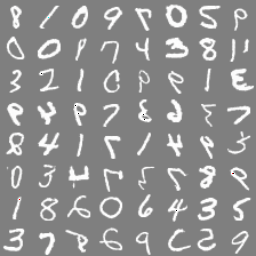 8 1 0 9 7 0 5 9
0 0 9 7 4 3 8 11
3 2 1 0 9 9 1 3
9 4 9 7 8 7
8 4 1 7 1 4 9 3
0 3 4 7 7 8 9
1 8 6 0 6 4 3 5
3 7 6 9 2 9